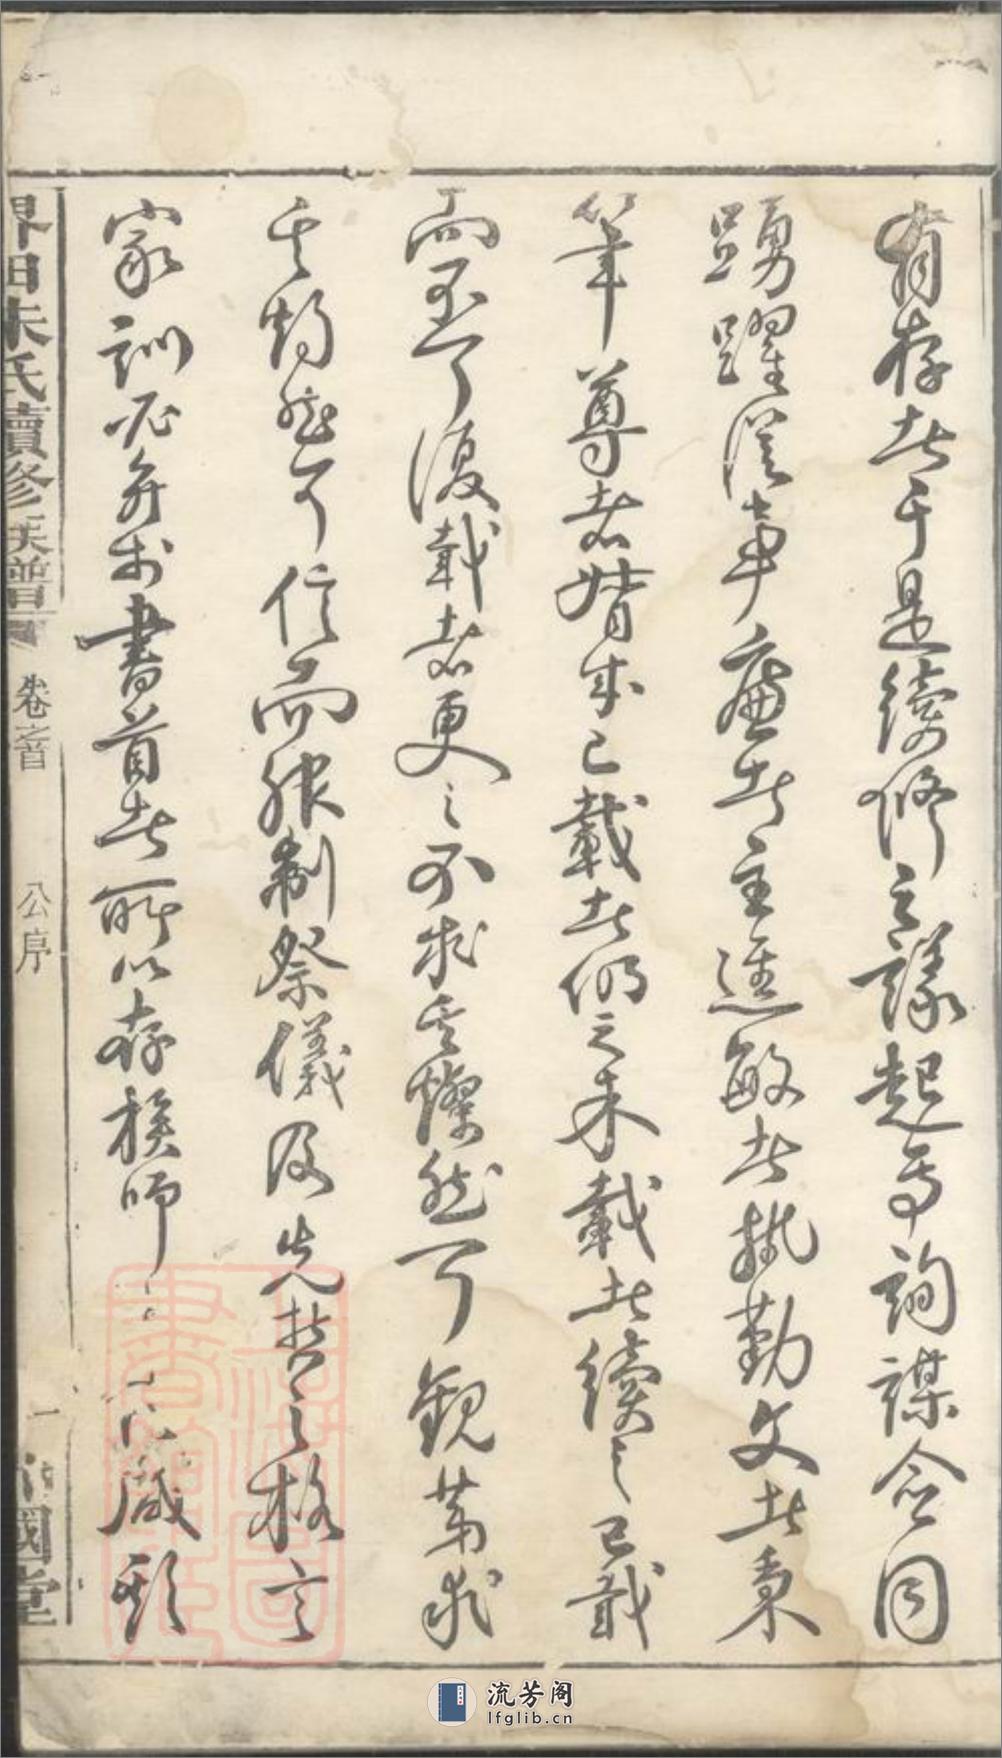 有存者于是續修之議起焉詢謀僉同
踴躍從事廉者主進敏者執勤文者秉
筆尊者督成已載者仍之未載者續之已載
而宜復載者更之不求其燦然可觀第求
其灼然可信而服制祭儀及先哲之格言
家訓必弁於書首者所以存模師
咸
界田朱氏續修族譜
卷之首
公序
一
國堂
流芳阁
lfglib.cn